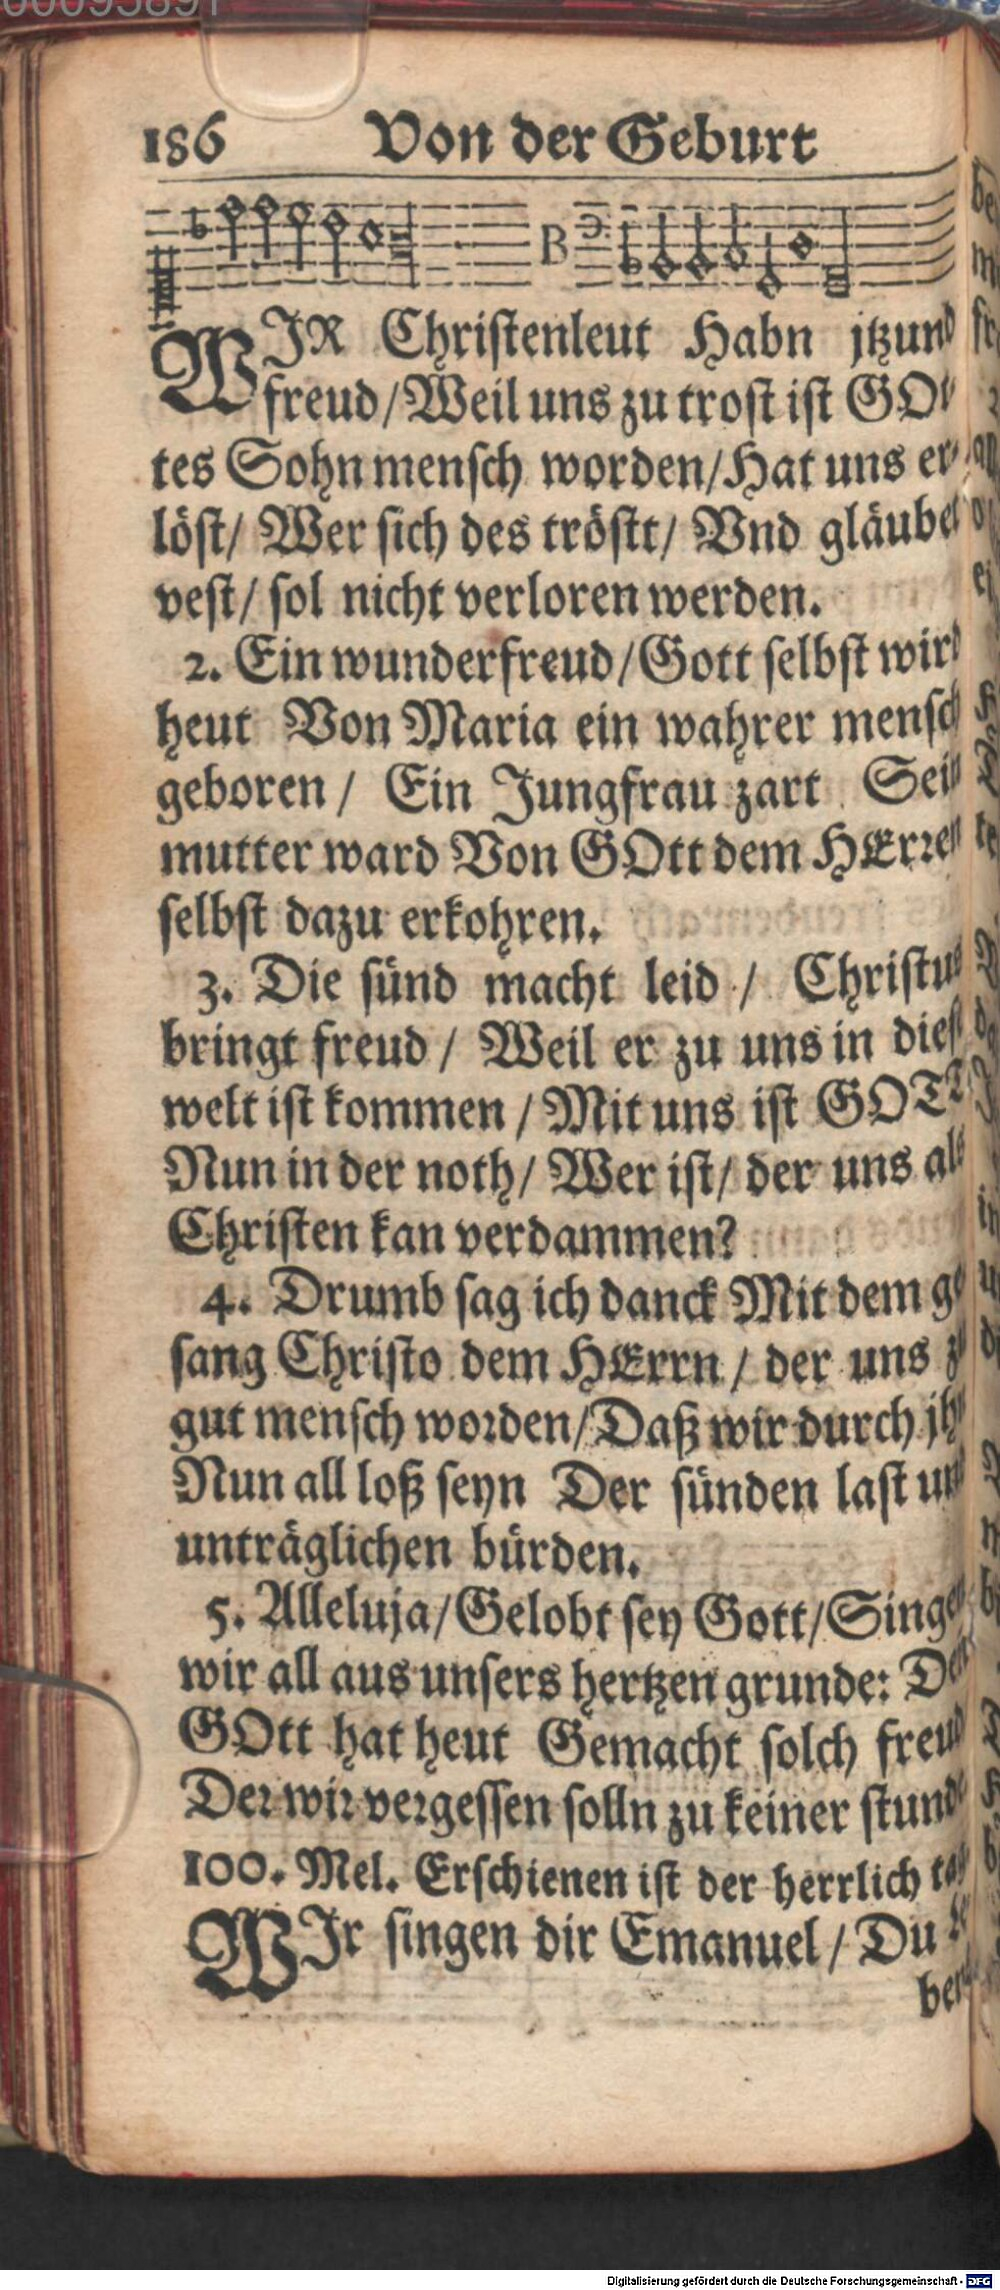 00095891
186 Von der Geburt
B
WIR Christenleut Habn jtzund
freud/Weil uns zu trost ist GOt-
tes Sohn mensch worden/Hat uns er-
löst/ Wer sich des tröstt/ Vnd gläubet
vest/ sol nicht verloren werden.
2. Ein wunderfreud/Gott selbst wird
heut Von Maria ein wahrer mensch
geboren/ Ein Jungfrau zart Sein
mutter ward Von GOtt dem HErren
selbst dazu erkohren.
3. Die sünd macht leid / Christus
bringt freud / Weil er zu uns in diese
welt ist kommen / Mit uns ist GOTT
Nun in der noth/ Wer ist/ der uns als
Christen kan verdammen?
4. Drumb sag ich danck Mit dem ge
sang Christo dem HErrn / der uns zu
gut mensch worden/Daß wir durch jhn
Nun all loß seyn Der sünden last und
unträglichen bürden.
5. Alleluja/Gelobt sey Gott/Singen
wir all aus unsers hertzen grunde: Denn
GOtt hat heut Gemacht solch freud
Der wir vergessen solln zu keiner stunde
100. Mel. Erschienen ist der herrlich tag
WIr singen dir Emanuel / Du Le
bens
Digitalisierung gefördert durch die Deutsche Forschungsgemeinschaft - DFG